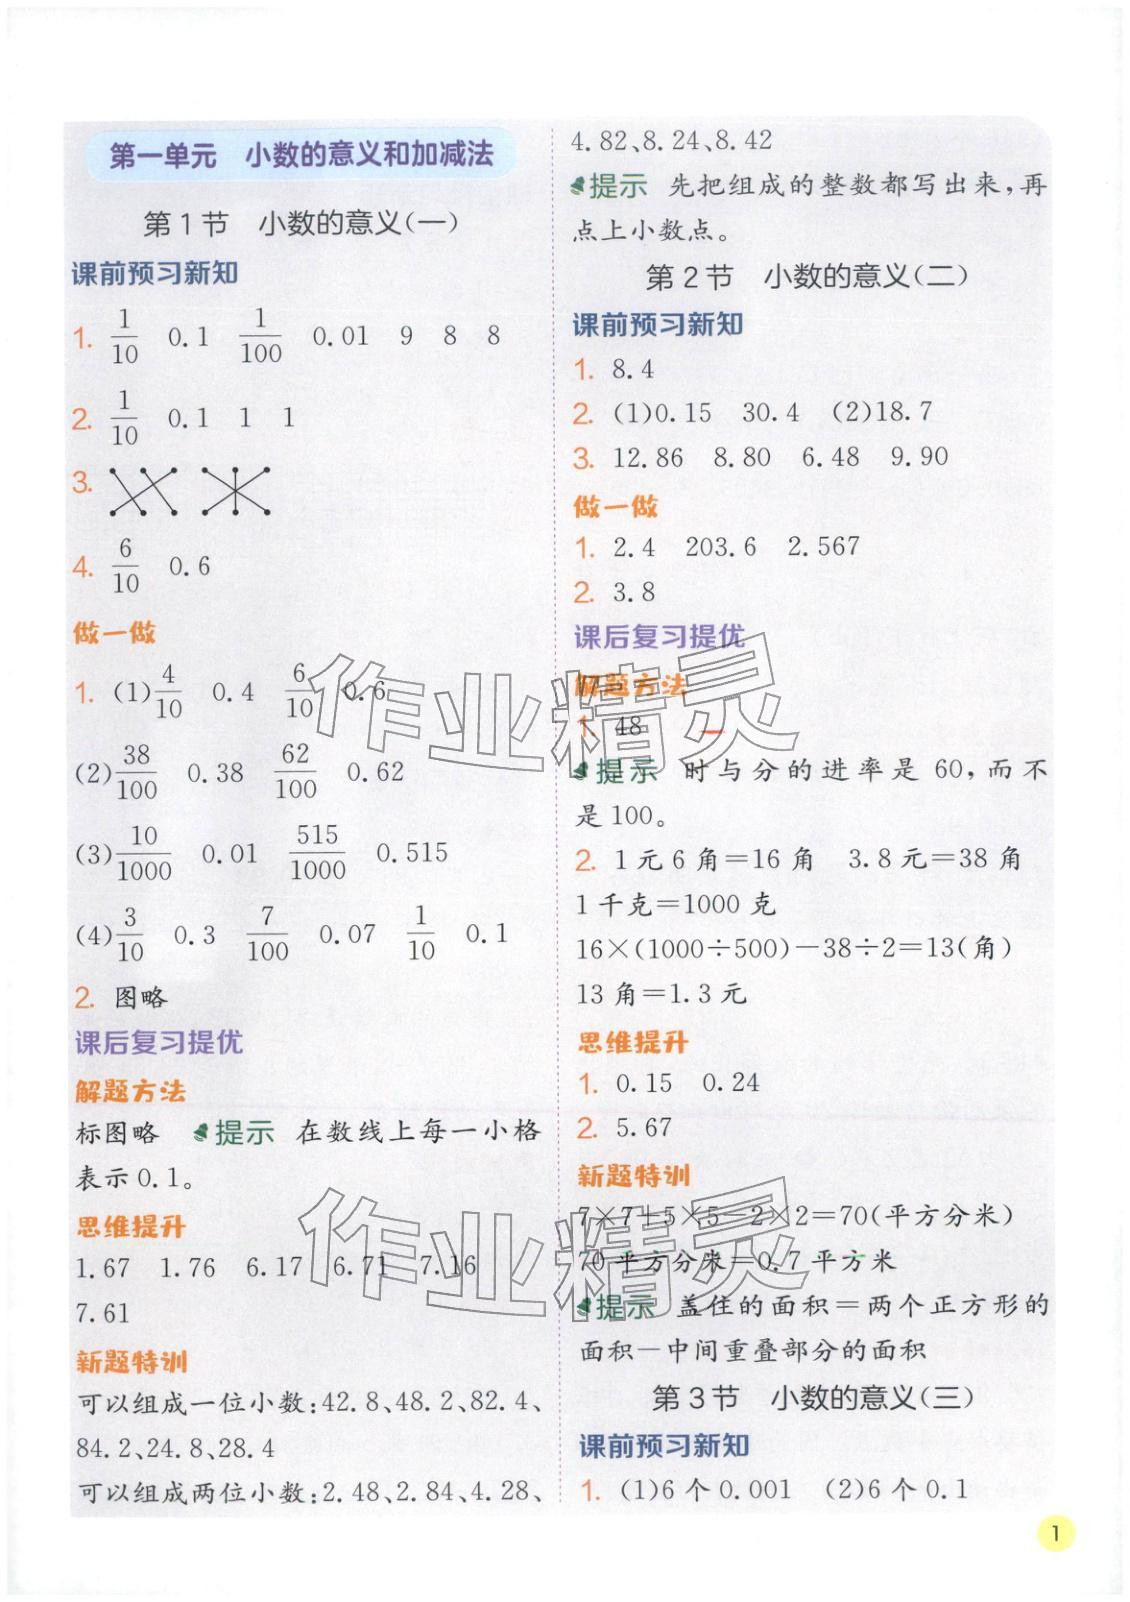 第一单元　小数的意义和加减法
第 1 节　小数的意义(一)
课前预习新知
1. 1/10　0.1　1/100　0.01　9　8　8
2. 1/10　0.1　1　1
3.
4. 6/10　0.6
做一做
1. (1)4/10　0.4　6/10　0.6
(2)38/100　0.38　62/100　0.62
(3)10/1000　0.01　515/1000　0.515
(4)3/10　0.3　7/100　0.07　1/10　0.1
2. 图略
课后复习提优
解题方法
标图略　提示　在数线上每一小格
表示 0.1。
思维提升
1.67　1.76　6.17　6.71　7.16
7.61
新题特训
可以组成一位小数:42.8、48.2、82.4、
84.2、24.8、28.4
可以组成两位小数:2.48、2.84、4.28、
4.82、8.24、8.42
提示　先把组成的整数都写出来,再
点上小数点。
第 2 节　小数的意义(二)
课前预习新知
1. 8.4
2. (1)0.15　30.4　(2)18.7
3. 12.86　8.80　6.48　9.90
做一做
1. 2.4　203.6　2.567
2. 3.8
课后复习提优
解题方法
1. 48
提示　时与分的进率是 60,而不
是 100。
2. 1 元 6 角=16 角　3.8 元=38 角
1 千克=1000 克
16×(1000÷500)-38÷2=13(角)
13 角=1.3 元
思维提升
1. 0.15　0.24
2. 5.67
新题特训
7×7+5×5-2×2=70(平方分米)
70 平方分米=0.7 平方米
提示　盖住的面积=两个正方形的
面积-中间重叠部分的面积
第 3 节　小数的意义(三)
课前预习新知
1. (1)6 个 0.001　(2)6 个 0.1
作业精灵
作业精灵
1